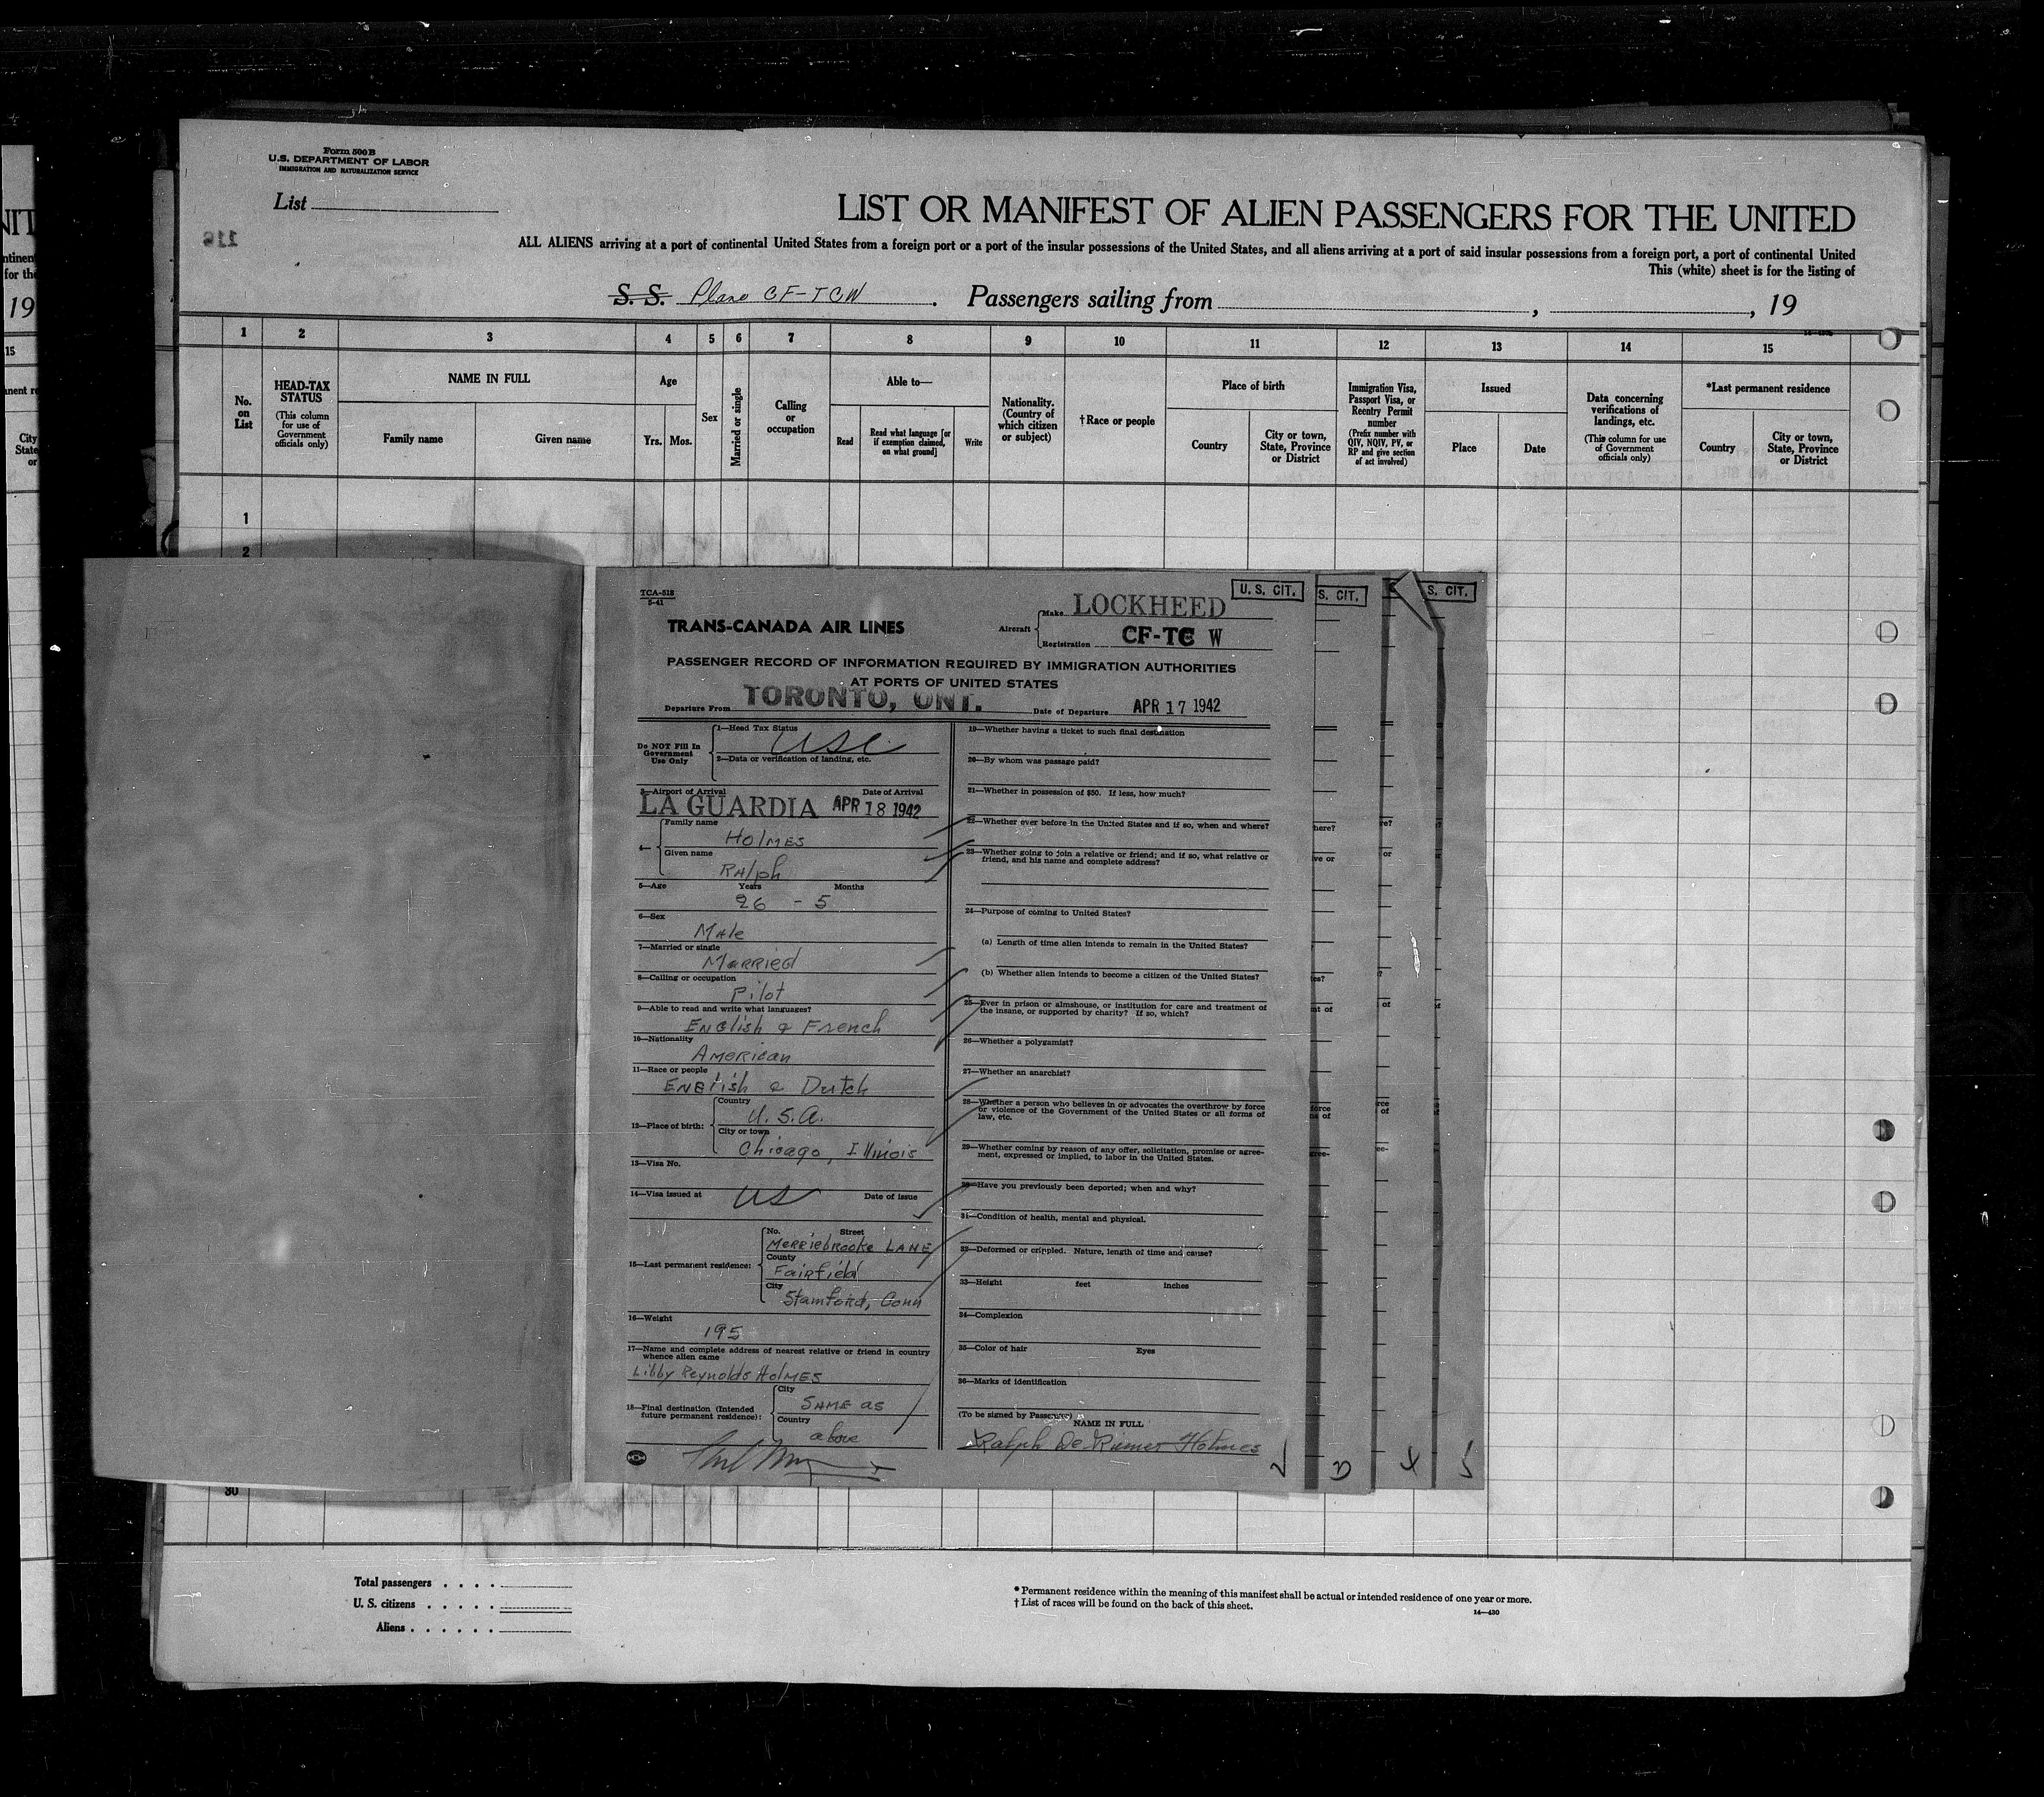 Form 500 B
U.S. DEPARTMENT OF LABOR
IMMIGRATION AND NATURALIZATION SERVICE
List
116
LIST OR MANIFEST OF ALIEN PASSENGERS FOR THE UNITED
ALL ALIENS arriving at a port of continental United States from a foreign port or a port of the insular possessions of the United States, and all aliens arriving at a port of said insular possessions from a foreign port, a port of continental United
This (white) sheet is for the listing of
S. S. Plane CF-TCW. Passengers sailing from , , 19
1 2 3 4 5 6 7 8 9 10 11 12 13 14 15
No. on List
HEAD-TAX STATUS
(This column for use of Government officials only)
NAME IN FULL
Family name
Given name
Age
Yrs. Mos.
Sex
Married or single
Calling or occupation
Able to—
Read
Read what language [or if exemption claimed, on what ground]
Write
Nationality. (Country of which citizen or subject)
†Race or people
Place of birth
Country
City or town, State, Province or District
Immigration Visa, Passport Visa, or Reentry Permit number
(Prefix number with QIV, NQIV, PV, or RP and give section of act involved)
Issued
Place
Date
Data concerning verifications of landings, etc.
(This column for use of Government officials only)
*Last permanent residence
Country
City or town, State, Province or District
1
2
TCA-518
5-41
U. S. CIT.
S. CIT.
S. CIT.
TRANS-CANADA AIR LINES
Aircraft
Make LOCKHEED
Registration CF-TC W
PASSENGER RECORD OF INFORMATION REQUIRED BY IMMIGRATION AUTHORITIES
AT PORTS OF UNITED STATES
Departure From TORONTO, ONT. Date of Departure APR 17 1942
Do NOT Fill In
Government
Use Only
1—Head Tax Status
USC
2—Data or verification of landing, etc.
3—Airport of Arrival Date of Arrival
LA GUARDIA APR 18 1942
4—
Family name
Holmes
Given name
Ralph
5—Age Years Months
26 - 5
6—Sex
Male
7—Married or single
Married
8—Calling or occupation
Pilot
9—Able to read and write what languages?
English & French
10—Nationality
American
11—Race or people
English & Dutch
12—Place of birth:
Country
U.S.A.
City or town
Chicago, Illinois
13—Visa No.
14—Visa issued at Date of issue
US
15—Last permanent residence:
No. Street
Merriebrooke LANE
County
Fairfield
City
Stamford, Conn
16—Weight
195
17—Name and complete address of nearest relative or friend in country
whence alien came
Libby Reynolds Holmes
18—Final destination (Intended
future permanent residence):
City
SAME as
Country
above
19—Whether having a ticket to such final destination
20—By whom was passage paid?
21—Whether in possession of $50. If less, how much?
22—Whether ever before in the United States and if so, when and where?
23—Whether going to join a relative or friend; and if so, what relative or
friend, and his name and complete address?
24—Purpose of coming to United States?
(a) Length of time alien intends to remain in the United States?
(b) Whether alien intends to become a citizen of the United States?
25—Ever in prison or almshouse, or institution for care and treatment of
the insane, or supported by charity? If so, which?
26—Whether a polygamist?
27—Whether an anarchist?
28—Whether a person who believes in or advocates the overthrow by force
or violence of the Government of the United States or all forms of
law, etc.
29—Whether coming by reason of any offer, solicitation, promise or agree-
ment, expressed or implied, to labor in the United States.
30—Have you previously been deported; when and why?
31—Condition of health, mental and physical.
32—Deformed or crippled. Nature, length of time and cause?
33—Height feet inches
34—Complexion
35—Color of hair Eyes
36—Marks of identification
(To be signed by Passenger)
NAME IN FULL
Ralph De Rimer Holmes
30
Total passengers . . . .
U. S. citizens . . . . .
Aliens . . . . . .
* Permanent residence within the meaning of this manifest shall be actual or intended residence of one year or more.
† List of races will be found on the back of this sheet.
14—430